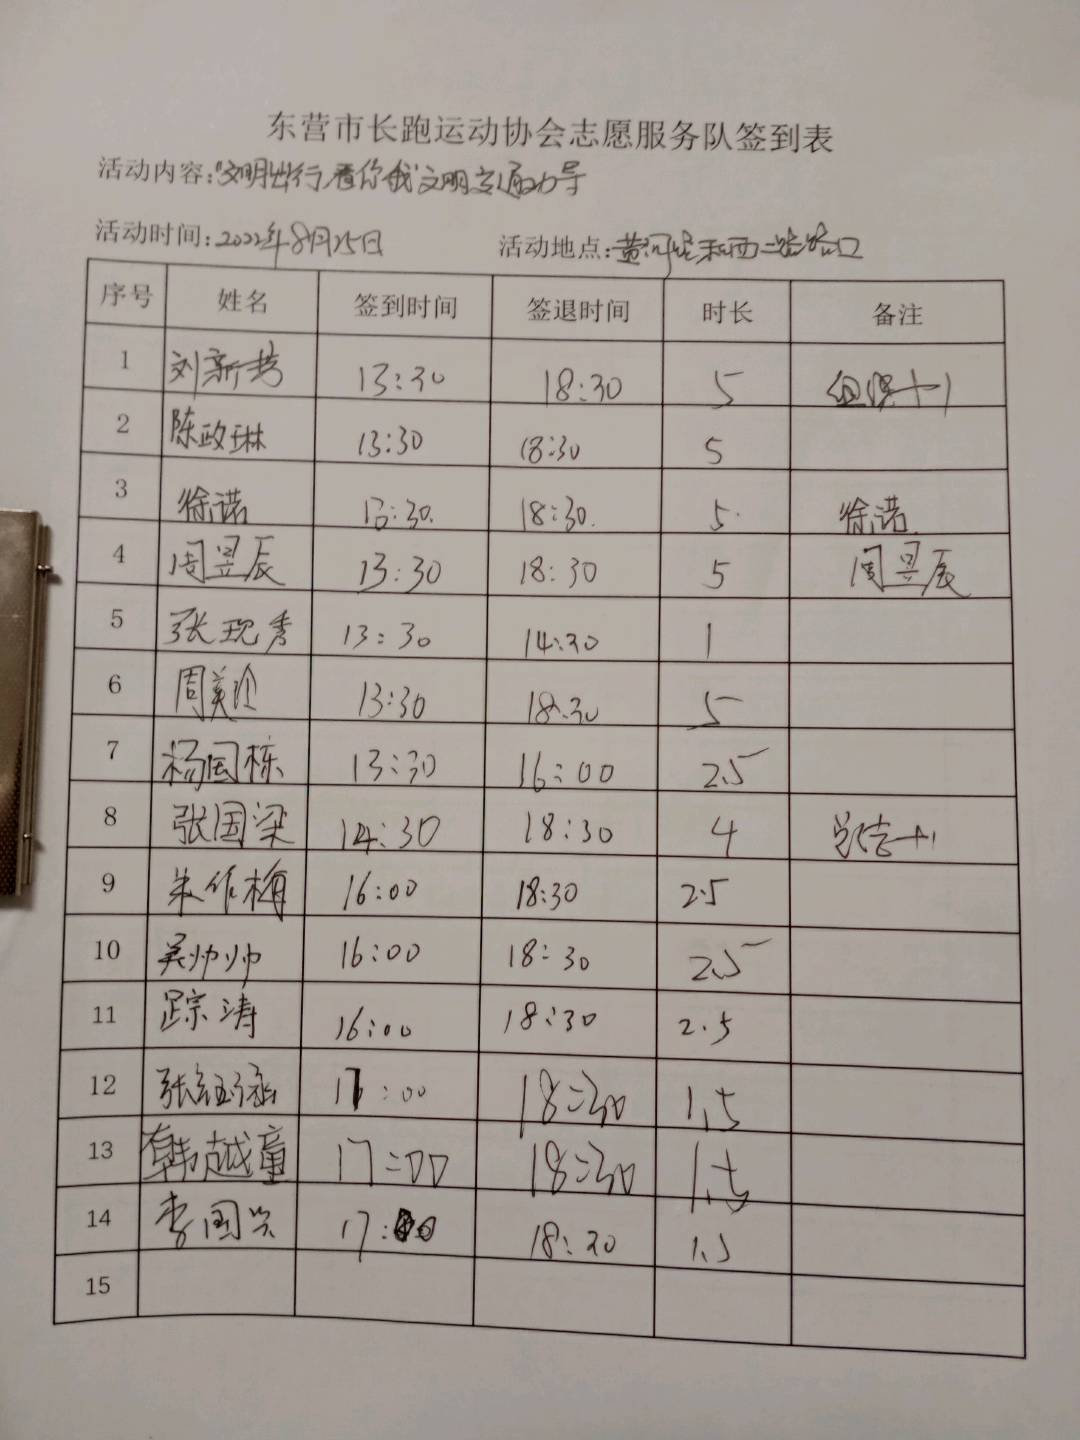 东营市长跑运动协会志愿服务队签到表
活动内容:"文明出行,看你我"文明交通劝导
活动时间:2022年8月25日 活动地点:黄河路和西二路路口
序号 姓名 签到时间 签退时间 时长 备注
1 刘新芳 13:30 18:30 5 +1
2 陈政琳 13:30 18:30 5
3 徐诺 13:30. 18:30. 5. 徐诺.
4 周昱辰 13:30 18:30 5 周昱辰
5 张现秀 13:30 14:30 1
6 周美玲 13:30 18:30 5
7 杨国栋 13:30 16:00 2.5
8 张国梁 14:30 18:30 4 总结+1
9 朱作梅 16:00 18:30 2.5
10 吴帅帅 16:00 18:30 2.5
11 踪涛 16:00 18:30 2.5
12 张钰涵 17:00 18:30 1.5
13 韩越童 17:00 18:30 1.5
14 李国兴 17:00 18:30 1.5
15